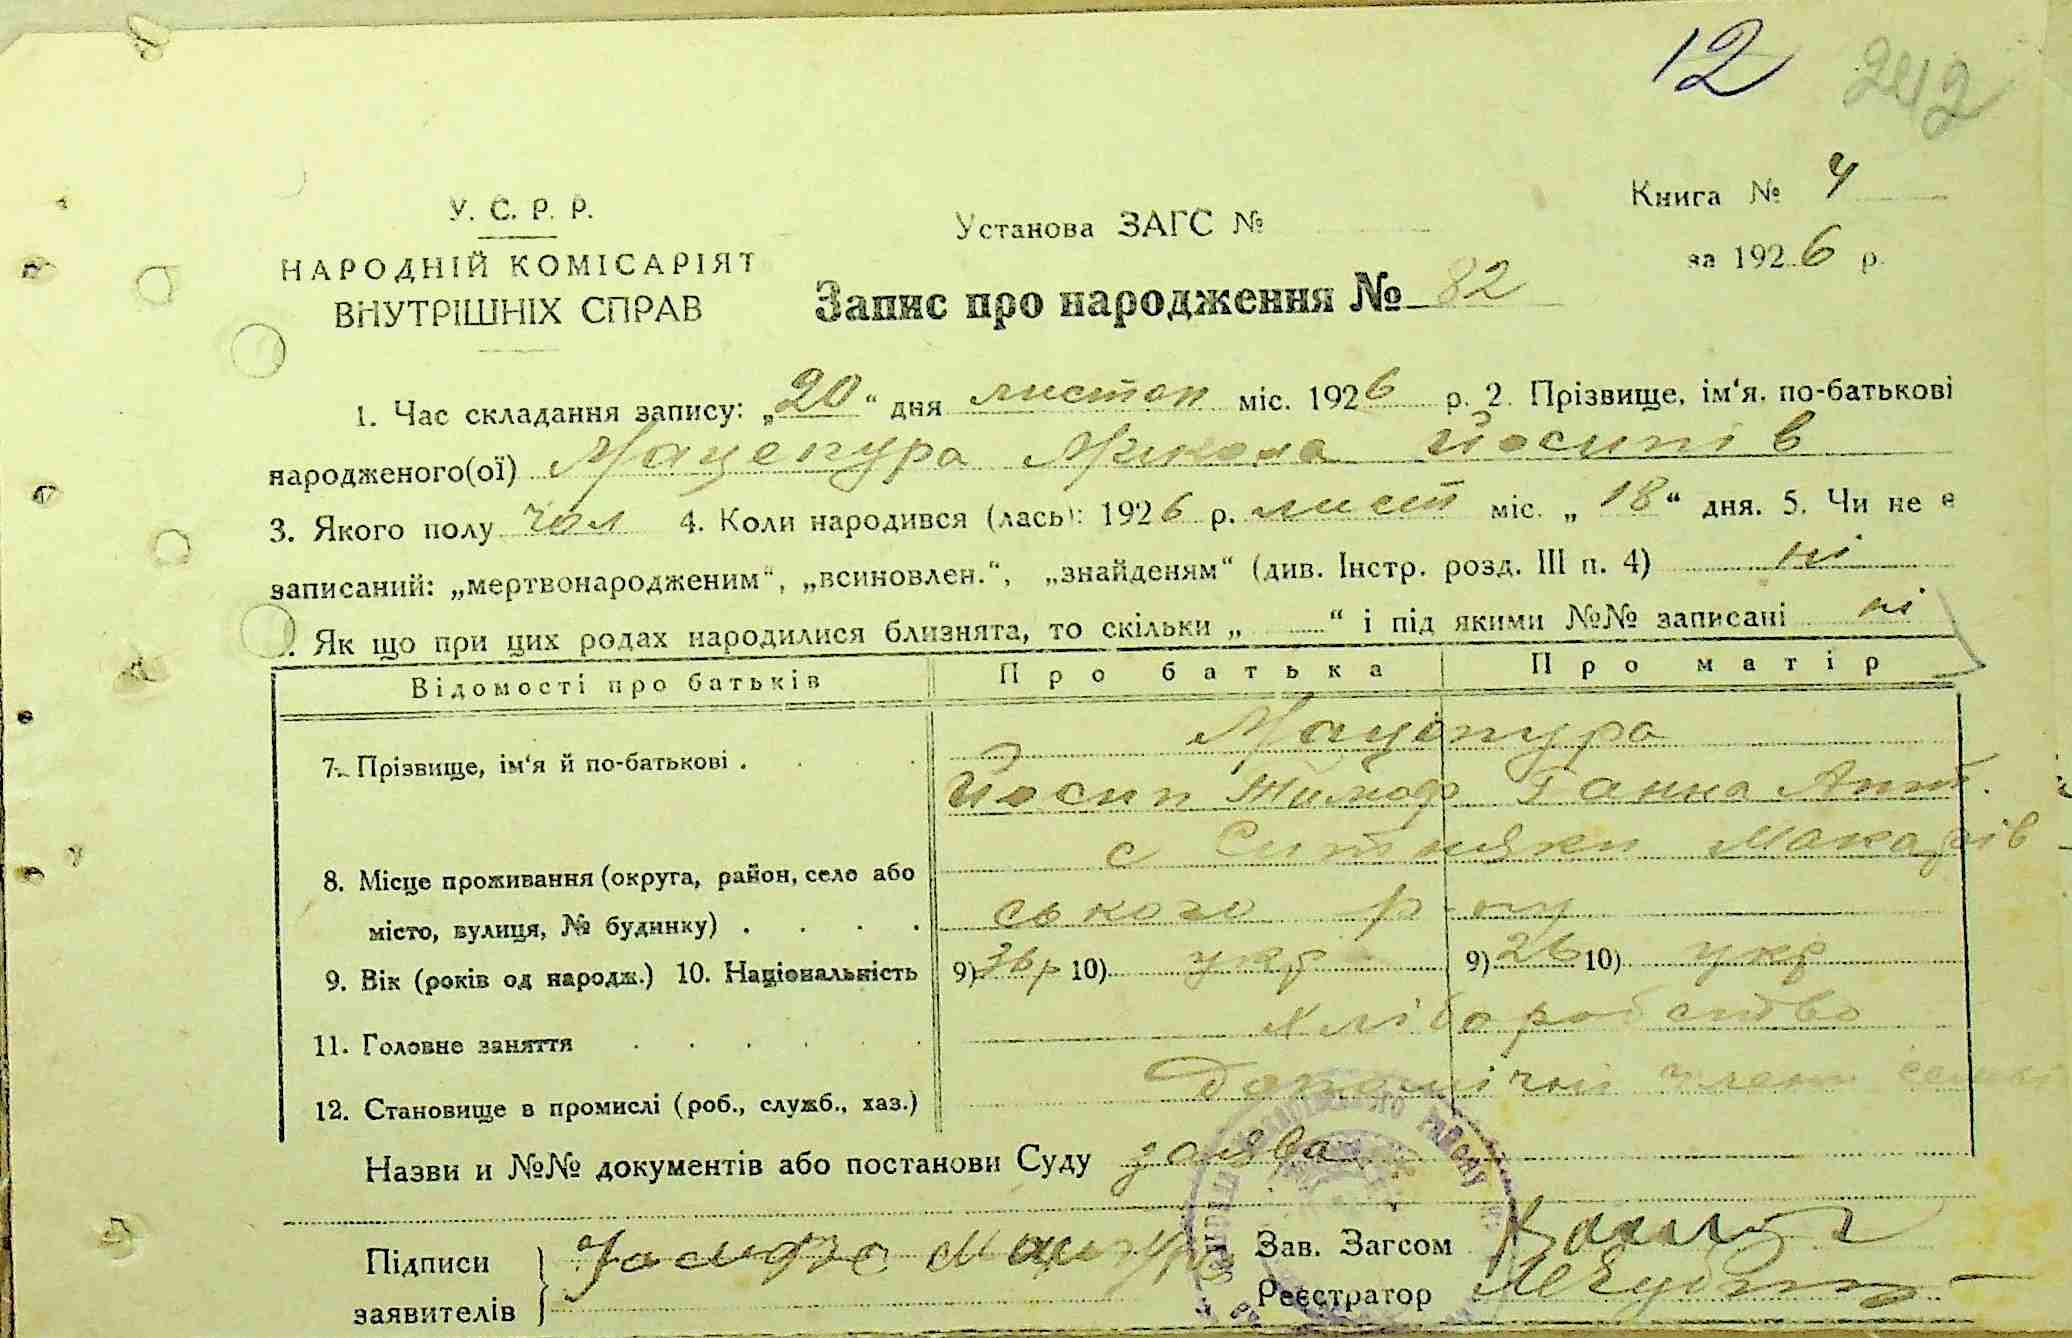 12 242
У. С. Р. Р.
НАРОДНІЙ КОМІСАРІЯТ
ВНУТРІШНІХ СПРАВ
Установа ЗАГС №
Книга № 4
за 1926 р.
Запис про народження № 82
1. Час складання запису: „20“ дня листоп міс. 1926 р. 2. Прізвище, ім‘я, по-батькові
народженого(ої) Мацепура Микола Йосипів
3. Якого полу чол 4. Коли народився (лась): 1926 р. лист міс. „18“ дня. 5. Чи не є
записаний: „мертвонародженим“, „всиновлен.“, „знайденям“ (див. Інстр. розд. III п. 4) ні
. Як що при цих родах народилися близнята, то скільки „ “ і під якими №№ записані ні
Відомості про батьків Про батька Про матір
Мацепура
7. Прізвище, ім‘я й по-батькові .
Йосип Тимоф Ганна Ант.
с Ситняки Макарів
8. Місце проживання (округа, район, село або
місто, вулиця, № будинку) . . . .
ського р-ну
9. Вік (років од народж.) 10. Національність 9) 36 р 10) укр 9) 26 10) укр
11. Головне заняття . . . . . . хліборобство
12. Становище в промислі (роб., служб., хаз.) допоміжний член сем
Назви и №№ документів або постанови Суду заява
Підписи
заявителів
Зав. Загсом
Реєстратор
РАЙОНУ